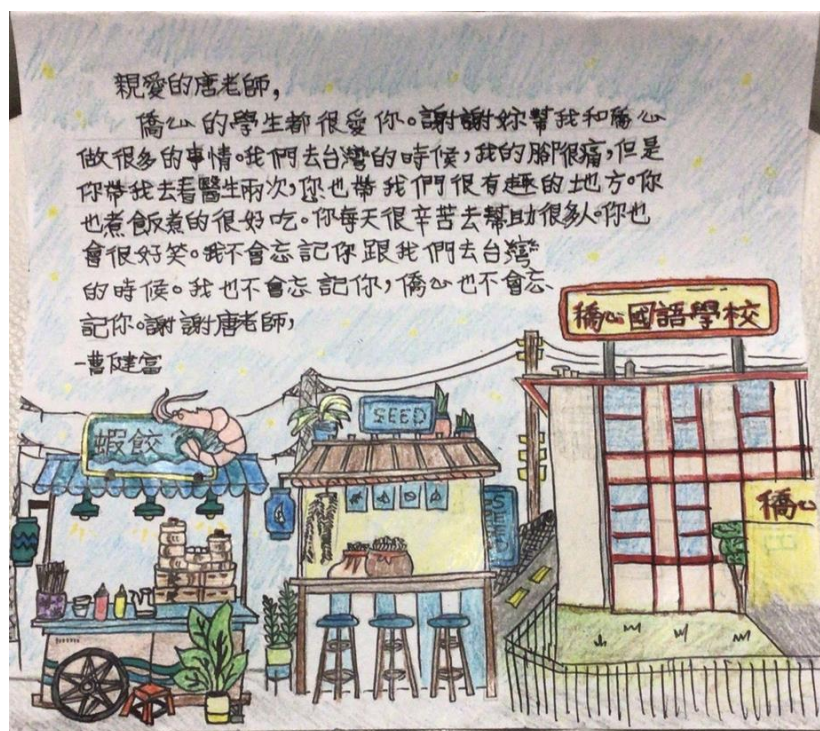 親愛的唐老師,
僑心的學生都很愛你。謝謝妳幫我和僑心
做很多的事情。我們去台灣的時候,我的腳很痛,但是
你帶我去看醫生兩次,您也帶我們很有趣的地方。你
也煮飯煮的很好吃。你每天很辛苦去幫助很多人。你也
會很好笑。我不會忘記你跟我們去台灣
的時候。我也不會忘記你,僑心也不會忘
記你。謝謝唐老師,
-曹健富
僑心國語學校
SEED
蝦餃
僑心
SEED